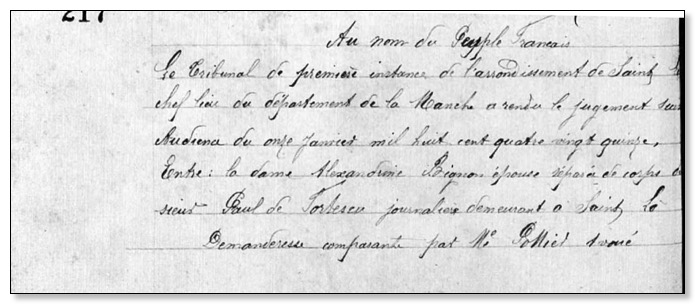 217
Au nom du Peuple Francais
Le Tribunal de première instance de l'arrondissement de Saint
chef lieu du département de la Manche a rendu le jugement
Audience du onze Janvier mil huit cent quatre vingt quinze,
Entre: la dame Alexandrine Bignon épouse séparée de corps
sieur Paul de Fortescu journalière demeurant à Saint Lô
Demanderesse comparante par Me Pottier avoué